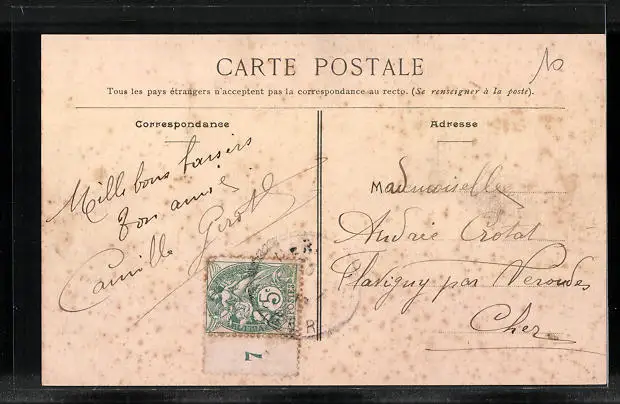 CARTE POSTALE
Tous les pays étrangers n'acceptent pas la correspondance au recto. (Se renseigner à la poste).
Correspondance
Adresse
Mille bons baisers
Ton amie
Camille
Mademoiselle
Andrée Crotat
Flavigny par Nérondes
Cher
5c
7